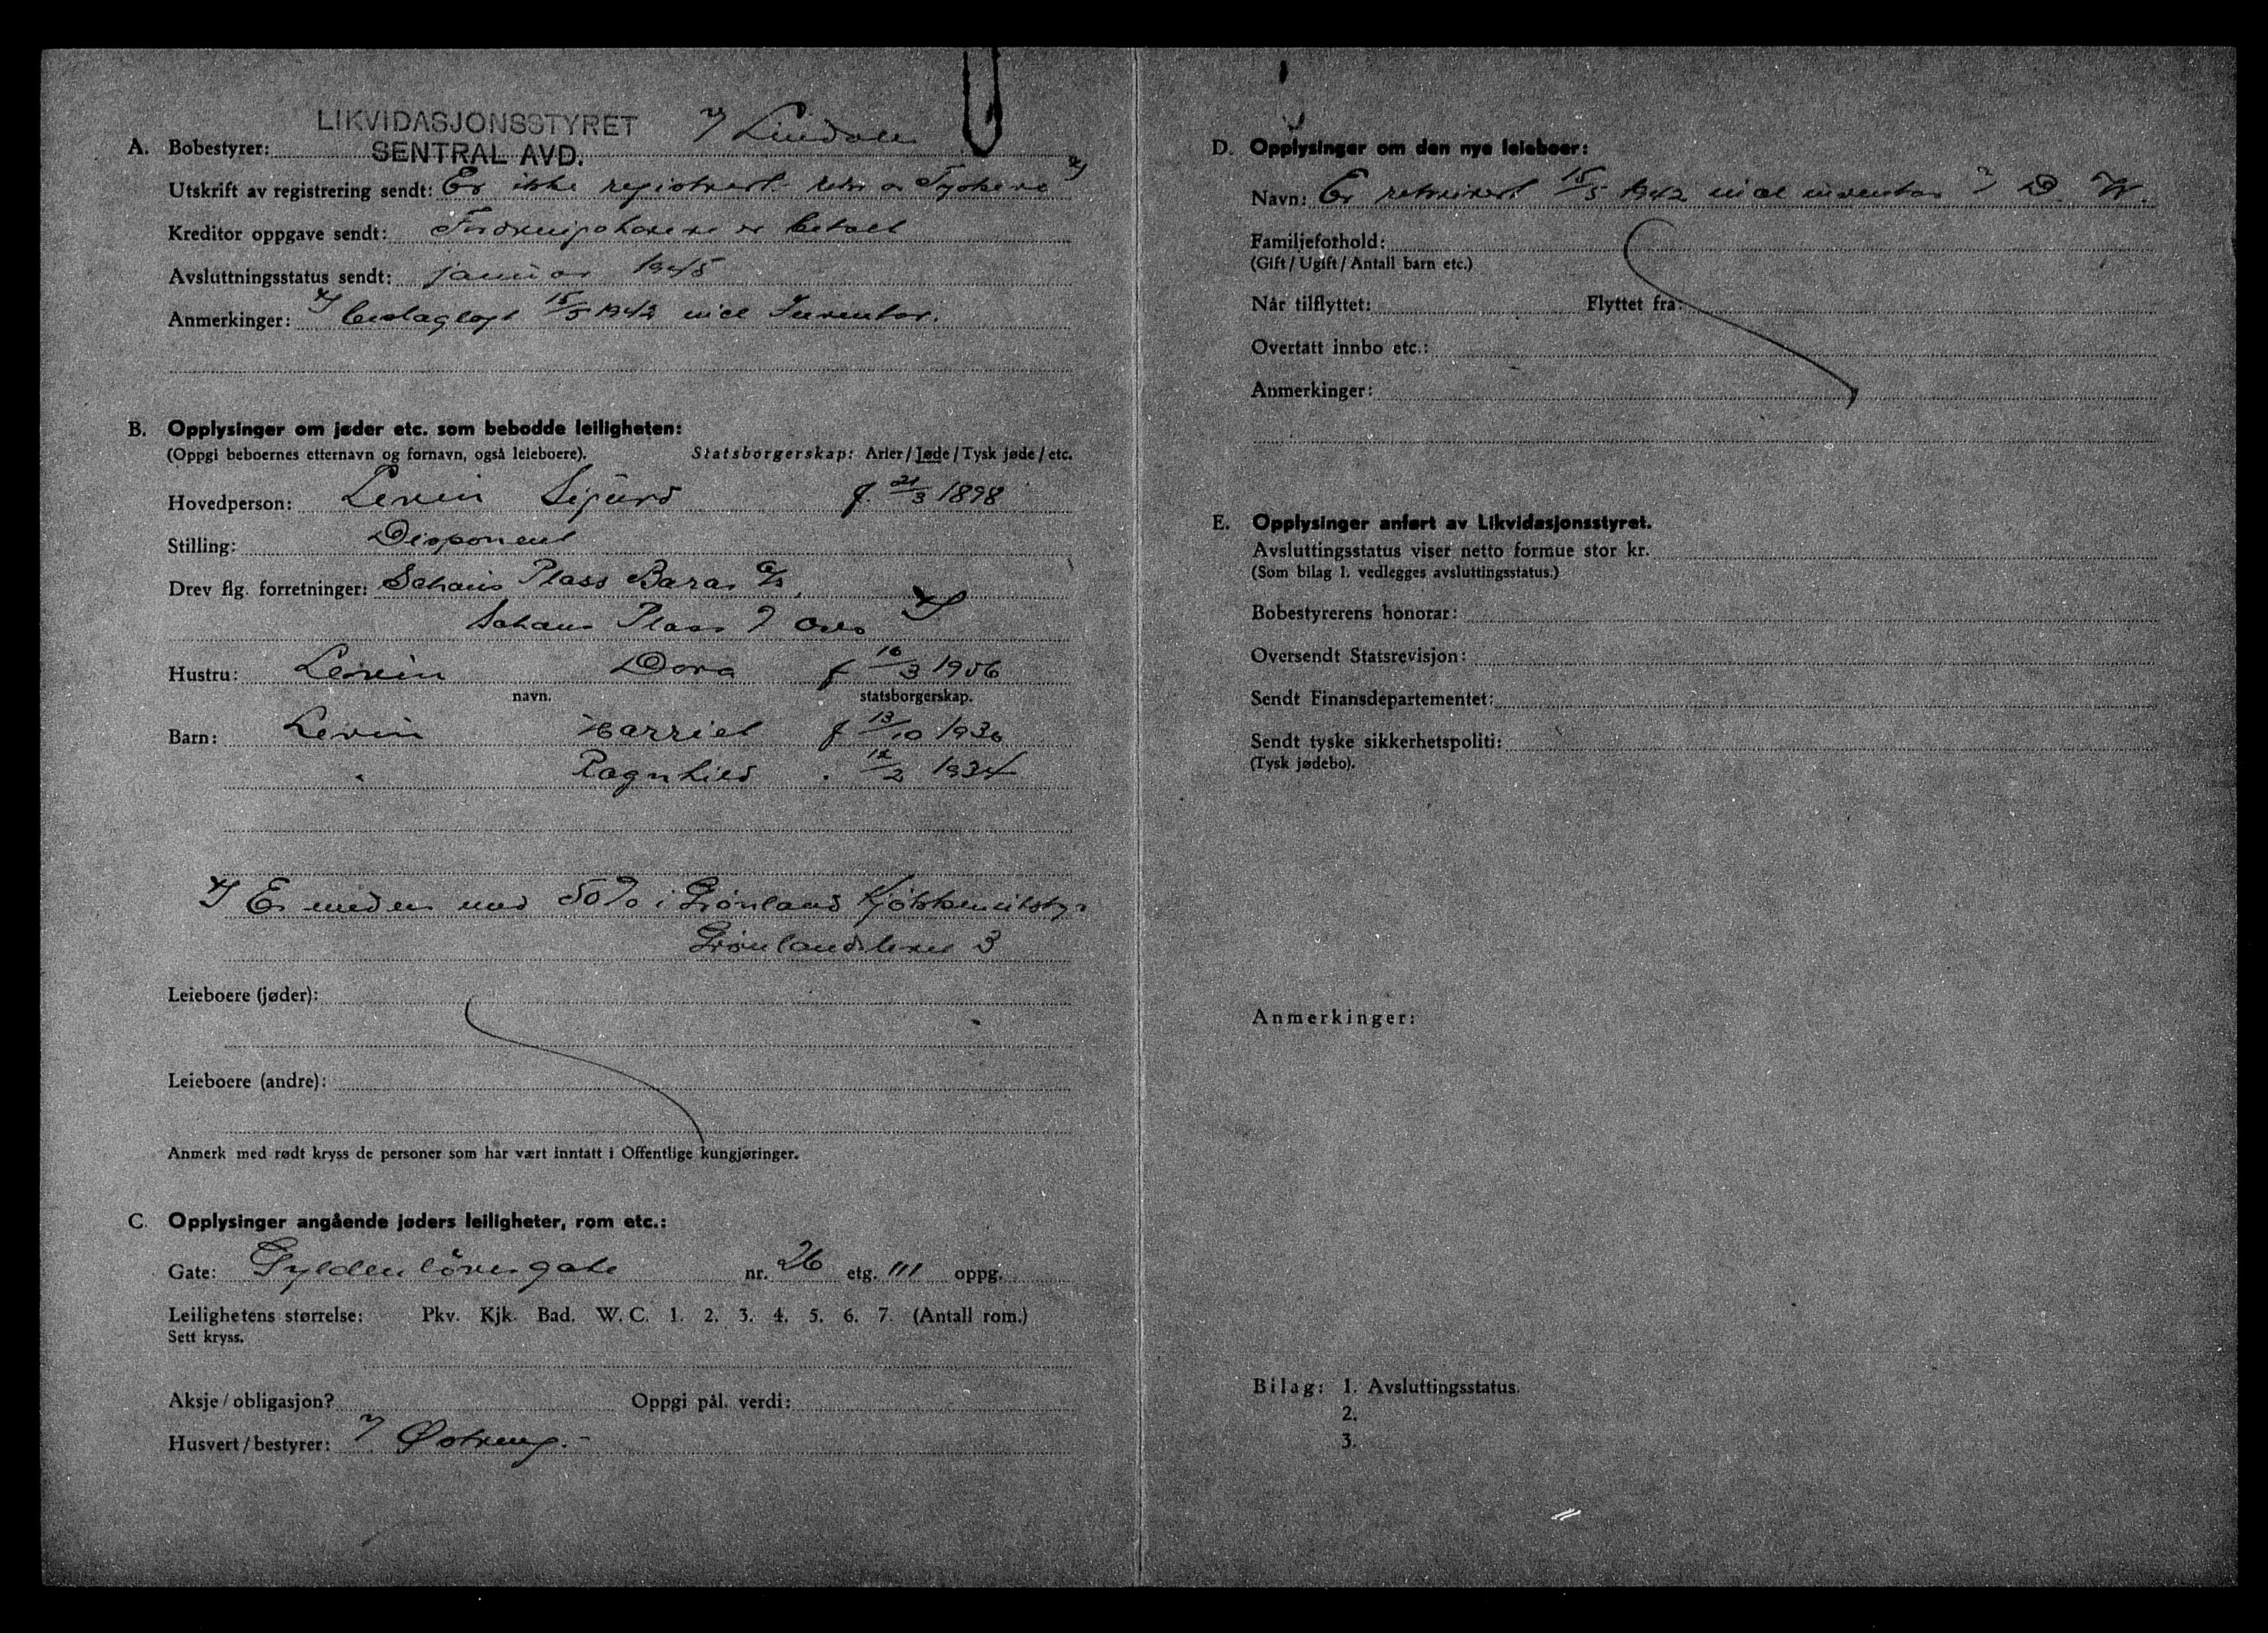 LIKVIDASJONSSTYRET
SENTRAL AVD.
A. Bobestyrer: Lindal
Utskrift av registrering sendt: Er ikke registrert.
Kreditor oppgave sendt: Fordringshavere er betalt
Avsluttningsstatus sendt: januar 1945
Anmerkinger: Beslaglagt 15/5 1942 med Inventar.
B. Opplysinger om jøder etc. som bebodde leiligheten:
(Oppgi beboernes etternavn og fornavn, også leieboere). Statsborgerskap: Arier / Jøde / Tysk jøde / etc.
Hovedperson: Levin Sigurd f. 21/3 1898
Stilling: Disponent
Drev flg. forretninger: Schous Plass Basar A/S,
Schous Plass 7 Oslo
Hustru: Levin Dora f 16/3 1906
navn. statsborgerskap.
Barn: Levin Harriet f 13/10 1930
" Ragnhild " 12/2 1934
Er medeier med 50% i Grønlands Kjøkkenutstyr
Grønlandsleret 3
Leieboere (jøder):
Leieboere (andre):
Anmerk med rødt kryss de personer som har vært inntatt i Offentlige kungjøringer.
C. Opplysinger angående jøders leiligheter, rom etc.:
Gate: Gyldenløvesgate nr. 26 etg. III oppg.
Leilighetens størrelse: Pkv. Kjk. Bad. W.C. 1. 2. 3. 4. 5. 6. 7. (Antall rom.)
Sett kryss.
Aksje / obligasjon? Oppgi pål. verdi:
Husvert / bestyrer: Østreng.-
D. Opplysinger om den nye leieboer:
Navn: Er rekvirert 15/5 1942 med inventar D. W.
Familjeforhold:
(Gift / Ugift / Antall barn etc.)
Når tilflyttet: Flyttet fra:
Overtatt innbo etc.:
Anmerkinger:
E. Opplysinger anført av Likvidasjonsstyret.
Avsluttingsstatus viser netto formue stor kr.
(Som bilag 1. vedlegges avsluttingsstatus.)
Bobestyrerens honorar:
Oversendt Statsrevisjon:
Sendt Finansdepartementet:
Sendt tyske sikkerhetspoliti:
(Tysk jødebo).
Anmerkinger:
Bilag: 1. Avsluttingsstatus.
2.
3.